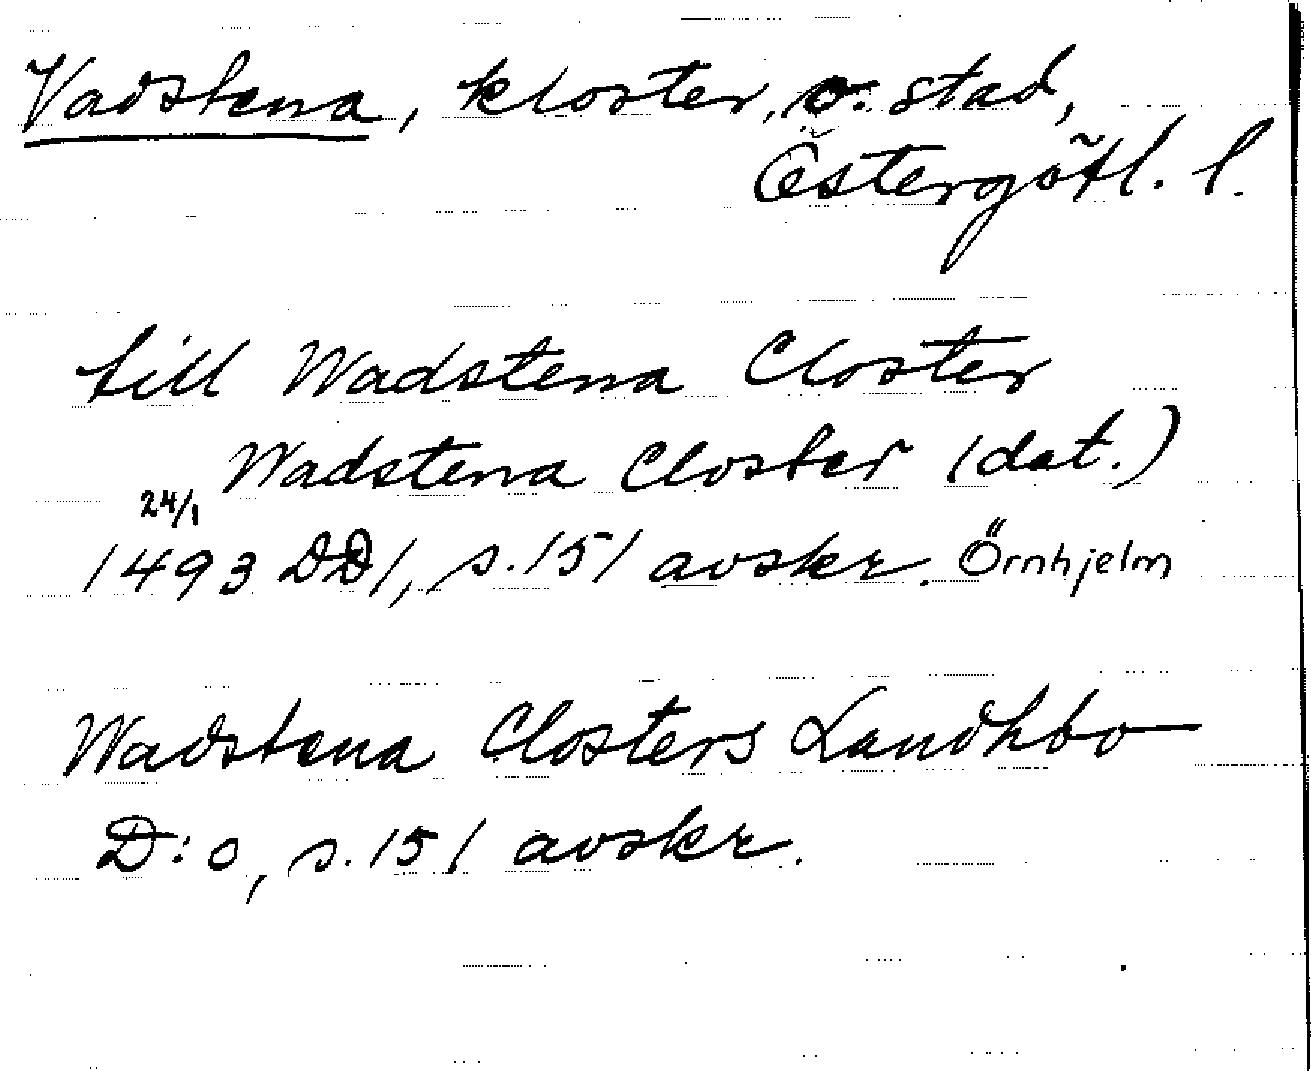 Vadstena, kloster, o. stad,
Östergötl. l.
till Wadstena Closter
Wadstena Closter (dat.)
24/1
1493 DD1, s. 151 avskr. Örnhjelm
Wadstena Closters Landhbo
D:o, s. 151 avskr.